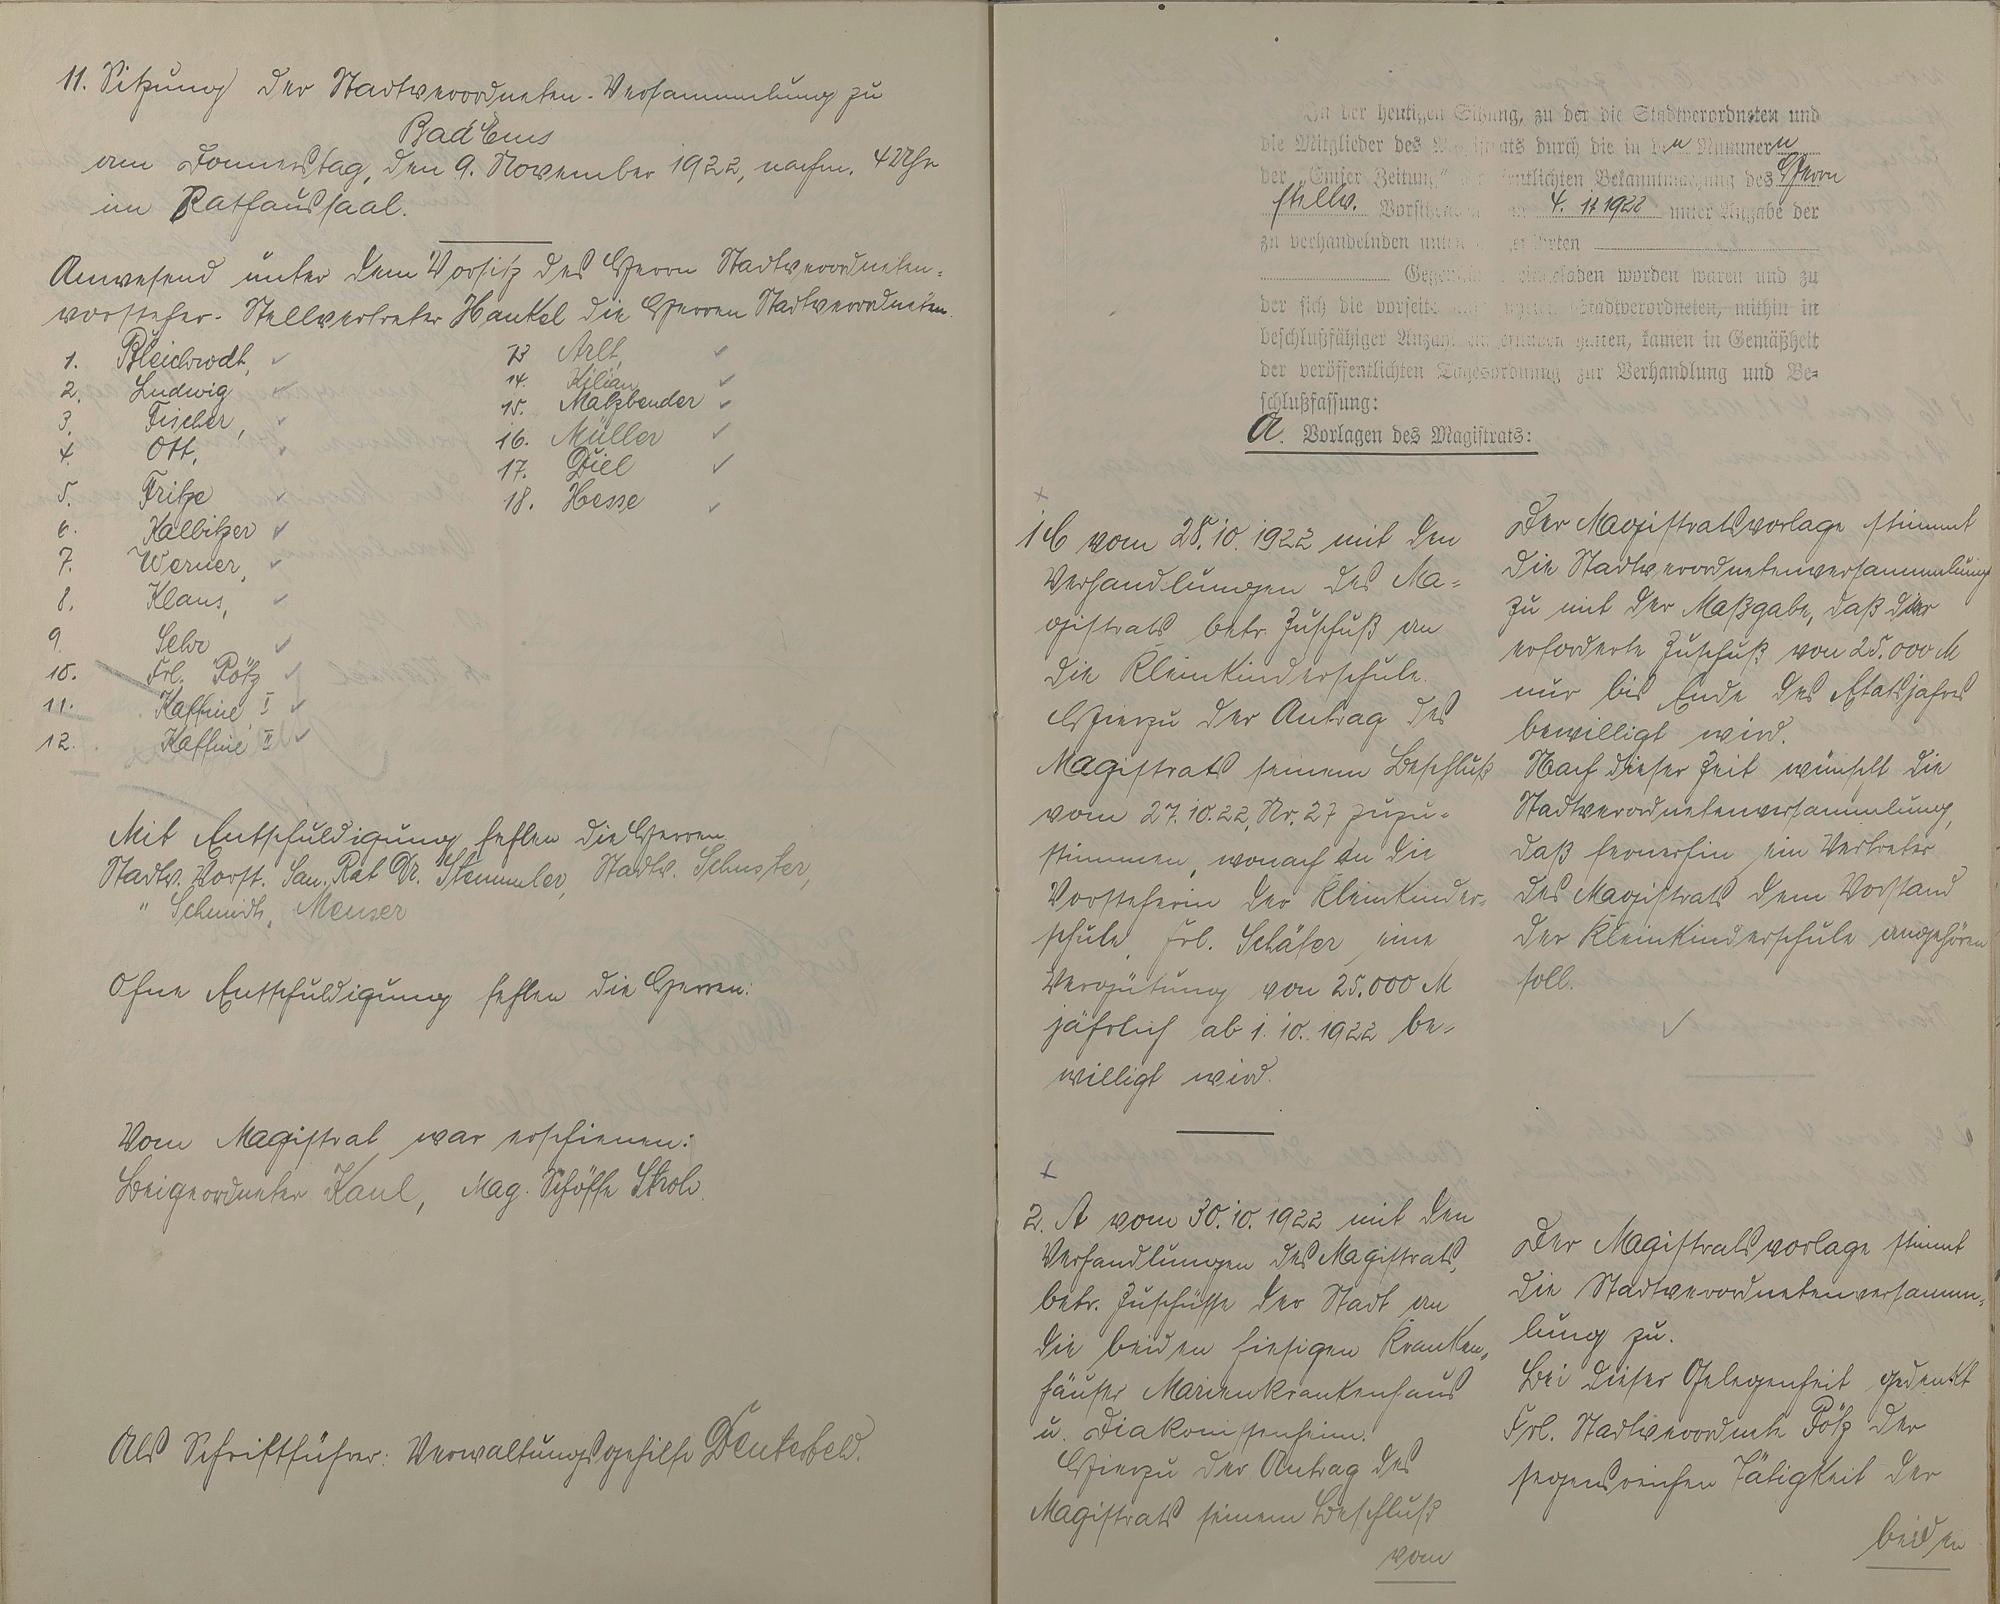 11. Sitzung der Stadtverordneten-Versammlung zu
Bad Ems
am Donnerstag, den 9. November 1922, nachm. 4 Uhr
im Rathaussaal.
Anwesend unter dem Vorsitz des Herrn Stadtverordneten-
vorsteher-Stellvertreter Hankel die Herren Stadtverordneten.
1. Bleichrodt,
2. Ludwig
3. Fischer,
4. Ott,
5. Fritze
6. Kalbitzer
7. Werner,
8. Klaus,
9. Sehr
10. Frl. Pötz
11. Kaffine I
12. Kaffine II
13 Arlt,
14. Kilian
15. Malzbender
16. Müller
17. Diel
18. Hesse
Mit Entschuldigung fehlen die Herren
Stadtv. Vorst. San. Rat Dr. Stemmler, Stadtv. Schuster,
" Schmidt, Meuser
Ohne Entschuldigung fehlen die Herren:
Vom Magistrat war erschienen:
Beigeordneter Kaul, Mag. Schöffe Stroh.
Als Schriftführer: Verwaltungsgehilfe
In der heutigen Sitzung, zu der die Stadtverordneten und
die Mitglieder des Magistrats durch die in den Nummern
der „Emser Zeitung" veröffentlichten Bekanntmachung des Herrn
stellv. Vorstehers 4. 11 1922 unter Angabe der
zu verhandelnden unten
Gegenstände eingeladen worden waren und zu
der sich die vorseits Stadtverordneten, mithin in
beschlußfähiger Anzahl eingefunden hatten, kamen in Gemäßheit
der veröffentlichten Tagesordnung zur Verhandlung und Be-
schlußfassung:
A. Vorlagen des Magistrats:
1 C vom 28.10.1922 mit den
Verhandlungen des Ma-
gistrats betr. Zuschuß an
die Kleinkinderschule.
Hierzu der Antrag des
Magistrats seinem Beschluß
vom 27.10.22, Nr. 27 zuzu-
stimmen, wonach an die
Vorsteherin der Kleinkinder-
schule, Frl. Schäfer eine
Vergütung von 25.000 M
jährlich ab 1.10.1922 be-
willigt wird.
Der Magistratsvorlage stimmt
die Stadtverordnetenversammlung
zu mit der Maßgabe, daß der
erforderte Zuschuß von 25.000 M
nur bis Ende des Etatsjahres
bewilligt wird.
Nach dieser Zeit wünscht die
Stadtverordnetenversammlung,
daß fernerhin ein Vertreter
des Magistrats dem Vorstand
der Kleinkinderschule angehören
soll.
2. A vom 30.10.1922 mit den
Verhandlungen des Magistrats,
betr. Zuschüsse der Stadt an
die beiden hiesigen Kranken-
häuser Marienkrankenhaus
u. Diakonissenheim.
Hierzu der Antrag des
Magistrats seinem Beschluß
vom
Der Magistratsvorlage stimmt
die Stadtverordnetenversamm-
lung zu.
Bei dieser Gelegenheit gedenkt
Frl. Stadtverordnete Pötz der
segensreichen Tätigkeit der
beiden